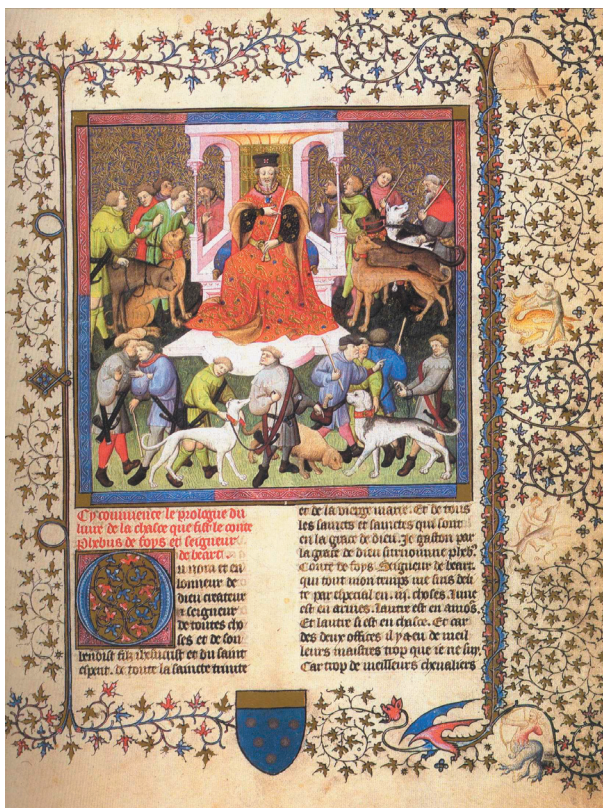 Cy commence le prologue du
liure de la chasce que fist le conte
phebus de foys et seigneur
de bearn
Ou nom et en
lonneur de
dieu createur
et seigneur
de toutes cho
ses et de son
benoist filz ihesucrist et du saint
esperit. de toute la saincte trinite
et de la vierge marie. Et de tous
les saincts et sainctes qui sont
en la grace de dieu. Je gaston par
la grace de dieu surnomme pheb9
Conte de foys. Seigneur de bearn.
qui tout mon temps me suis deli
te par especial en .iii. choses. lune
est en armes. lautre est en amos.
Et lautre si est en chasce. Et car
des deux offices il y a eu de meil
leurs maistres trop que ie ne suy.
Car trop de meilleurs cheualiers